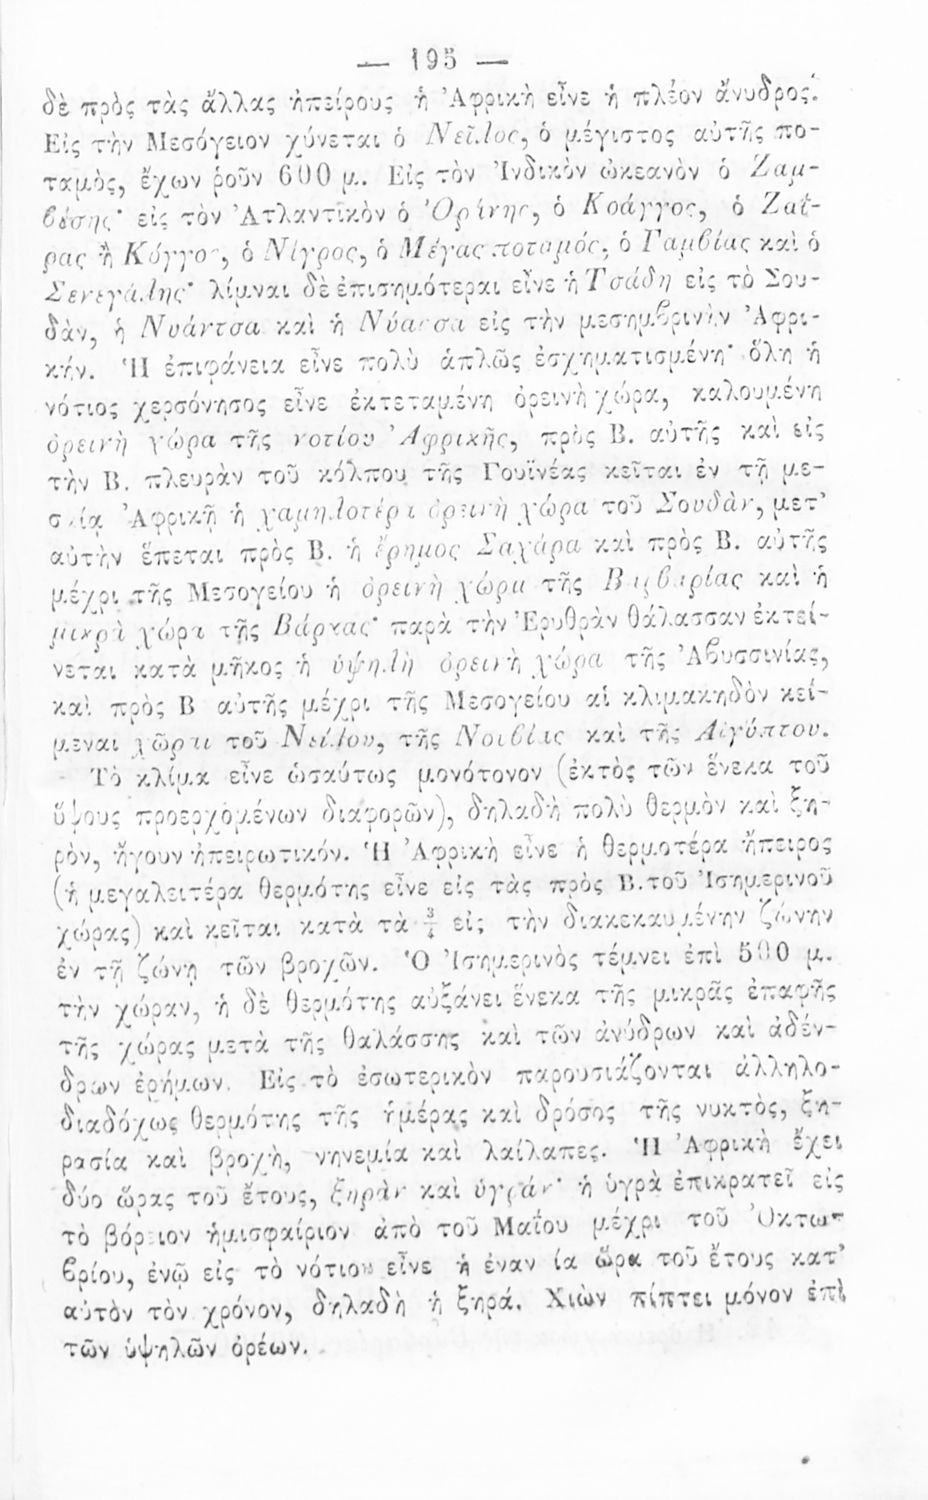 — 195 —
δὲ πρὸς τὰς ἄλλας ἠπείρους ἡ Ἀφρικὴ εἶνε ἡ πλέον ἄνυδρος.
Εἰς τὴν Μεσόγειον χύνεται ὁ Νεῖλος, ὁ μέγιστος αὐτῆς πο-
ταμὸς, ἔχων ῥοῦν 600 μ.. Εἰς τὸν Ἰνδικὸν ὠκεανὸν ὁ Ζαμ-
βέσης· εἰς τὸν Ἀτλαντικὸν ὁ Ὀρίνης, ὁ Κοάγγος, ὁ Ζαΐ-
ρας ἢ Κόγγος, ὁ Νίγρος, ὁ Μέγας ποταμός, ὁ Γαμβίας καὶ ὁ
Σενεγάλης· λίμναι δὲ ἐπισημότεραι εἶνε ἡ Τσάδη εἰς τὸ Σου-
δὰν, ἡ Νυάντσα καὶ ἡ Νύασσα εἰς τὴν μεσημβρινὴν Ἀφρι-
κήν. Ἡ ἐπιφάνεια εἶνε πολὺ ἁπλῶς ἐσχηματισμένη· ὅλη ἡ
νότιος χερσόνησος εἶνε ἐκτεταμένη ὀρεινὴ χώρα, καλουμένη
ὀρεινὴ χώρα τῆς νοτίου Ἀφρικῆς, πρὸς Β. αὐτῆς καὶ εἰς
τὴν Β. πλευρὰν τοῦ κόλπου τῆς Γουϊνέας κεῖται ἐν τῇ με-
σαίᾳ Ἀφρικῇ ἡ χαμηλοτέρα ὀρεινὴ χώρα τοῦ Σουδὰν, μετ'
αὐτὴν ἕπεται πρὸς Β. ἡ ἔρημος Σαχάρα καὶ πρὸς Β. αὐτῆς
μέχρι τῆς Μεσογείου ἡ ὀρεινὴ χώρα τῆς Βαρβαρίας καὶ ἡ
μικρὰ χώρα τῆς Βάρκας· παρὰ τὴν Ἐρυθρὰν θάλασσαν ἐκτεί-
νεται κατὰ μῆκος ἡ ὑψηλὴ ὀρεινὴ χώρα τῆς Ἀβυσσινίας,
καὶ πρὸς Β αὐτῆς μέχρι τῆς Μεσογείου αἱ κλιμακηδὸν κεί-
μεναι χῶραι τοῦ Νείλου, τῆς Νουβίας καὶ τῆς Αἰγύπτου.
Τὸ κλίμα εἶνε ὡσαύτως μονότονον (ἐκτὸς τῶν ἕνεκα τοῦ
ὕψους προερχομένων διαφορῶν), δηλαδὴ πολὺ θερμὸν καὶ ξη-
ρὸν, ἤγουν ἠπειρωτικόν. Ἡ Ἀφρικὴ εἶνε ἡ θερμοτέρα ἤπειρος
(ἡ μεγαλειτέρα θερμότης εἶνε εἰς τὰς πρὸς Β. τοῦ Ἰσημερινοῦ
χώρας) καὶ κεῖται κατὰ τὰ ¾ εἰς τὴν διακεκαυμένην ζώνην
ἐν τῇ ζώνῃ τῶν βροχῶν. Ὁ Ἰσημερινὸς τέμνει ἐπὶ 500 μ.
τὴν χώραν, ἡ δὲ θερμότης αὐξάνει ἕνεκα τῆς μικρᾶς ἐπαφῆς
τῆς χώρας μετὰ τῆς θαλάσσης καὶ τῶν ἀνύδρων καὶ ἀδέν-
δρων ἐρήμων. Εἰς τὸ ἐσωτερικὸν παρουσιάζονται ἀλληλο-
διαδόχως θερμότης τῆς ἡμέρας καὶ δρόσος τῆς νυκτὸς, ξη-
ρασία καὶ βροχὴ, νηνεμία καὶ λαίλαπες. Ἡ Ἀφρικὴ ἔχει
δύο ὥρας τοῦ ἔτους, ξηρὰν καὶ ὑγράν· ἡ ὑγρὰ ἐπικρατεῖ εἰς
τὸ βόρειον ἡμισφαίριον ἀπὸ τοῦ Μαΐου μέχρι τοῦ Ὀκτω-
βρίου, ἐνῷ εἰς τὸ νότιον εἶνε ἡ ἐναντία ὥρα τοῦ ἔτους κατ'
αὐτὸν τὸν χρόνον, δηλαδὴ ἡ ξηρά. Χιὼν πίπτει μόνον ἐπὶ
τῶν ὑψηλῶν ὀρέων.